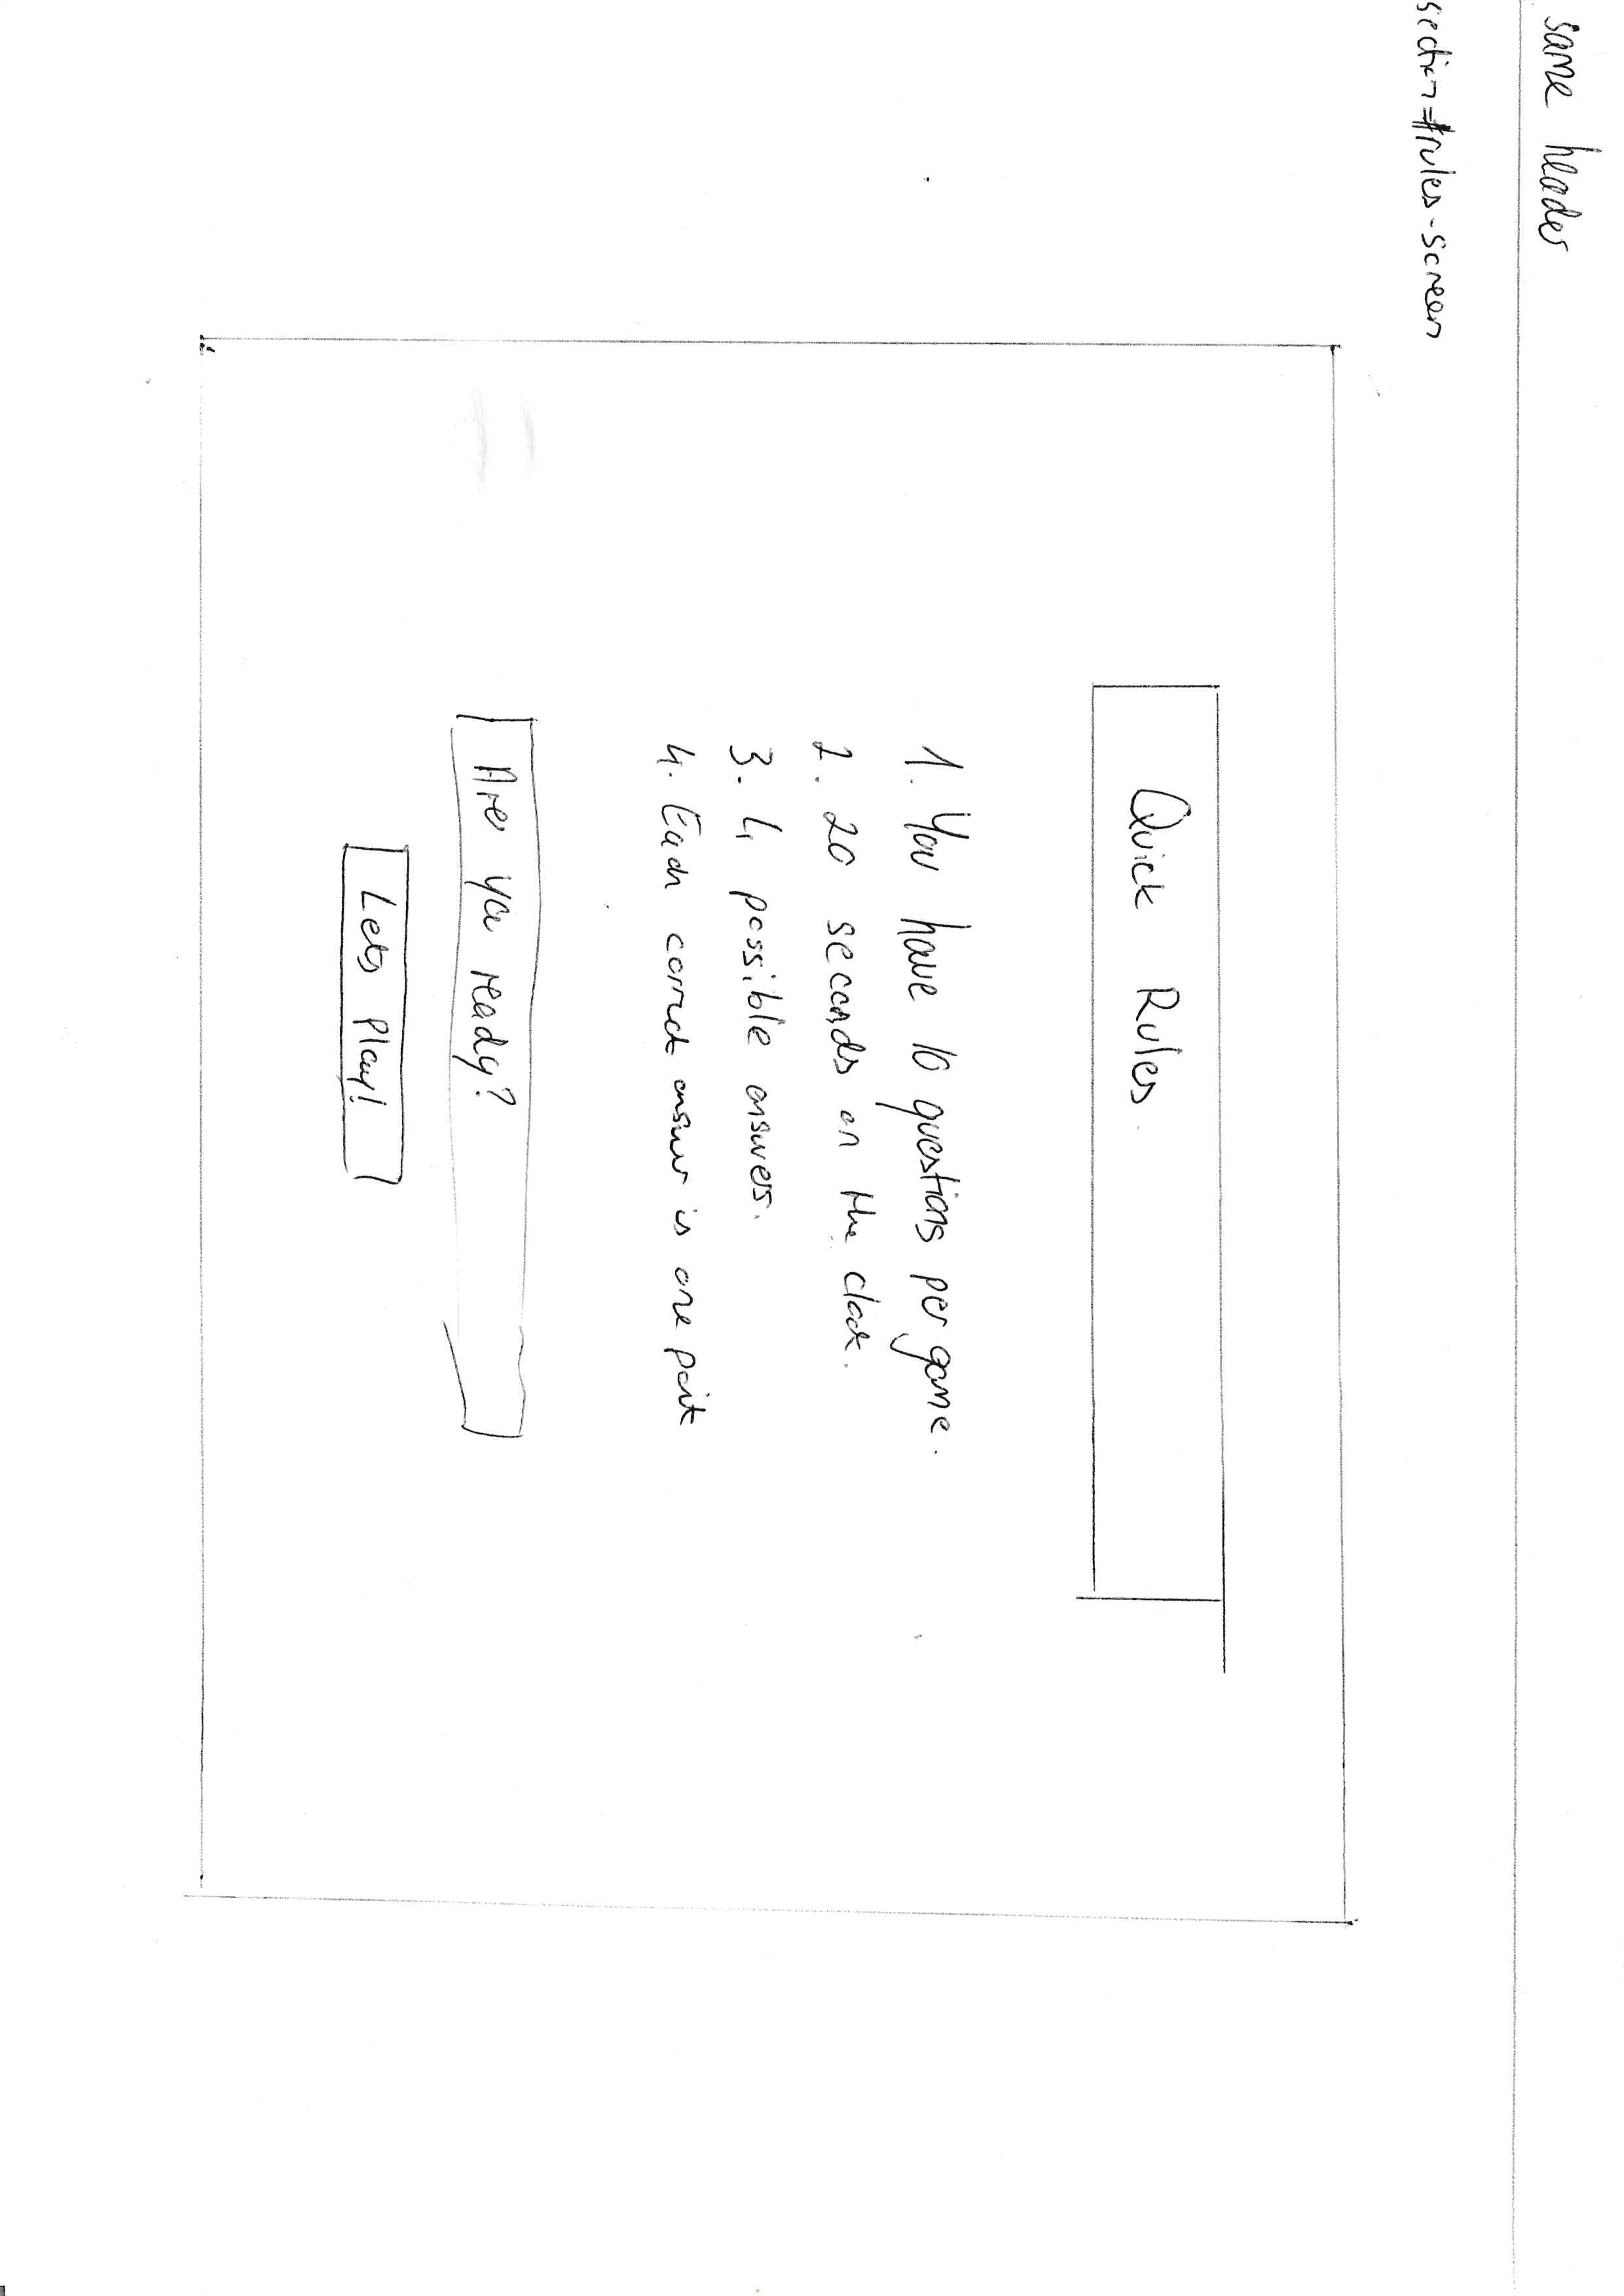 same header
section=#rules-screen
Quick Rules
1. You have 10 questions per game.
2. 20 seconds on the clock.
3. 4 possible answers.
4. Each correct answer is one point
Are you ready?
Lets Play!